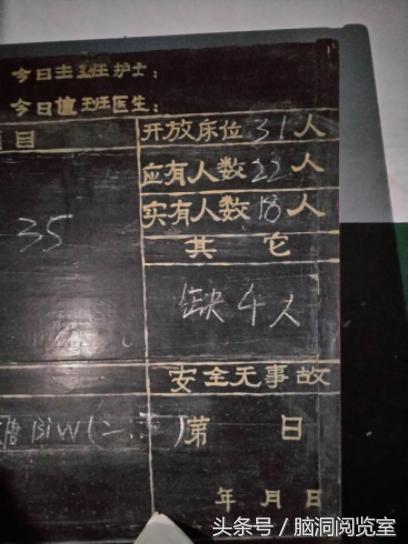 今日主班护士:
今日值班医生:
目
开放床位31人
应有人数22人
实有人数18人
其它
35
缺4人
安全无事故
糖BiW(二、五)第 日
年月日
头条号/脑洞阅览室